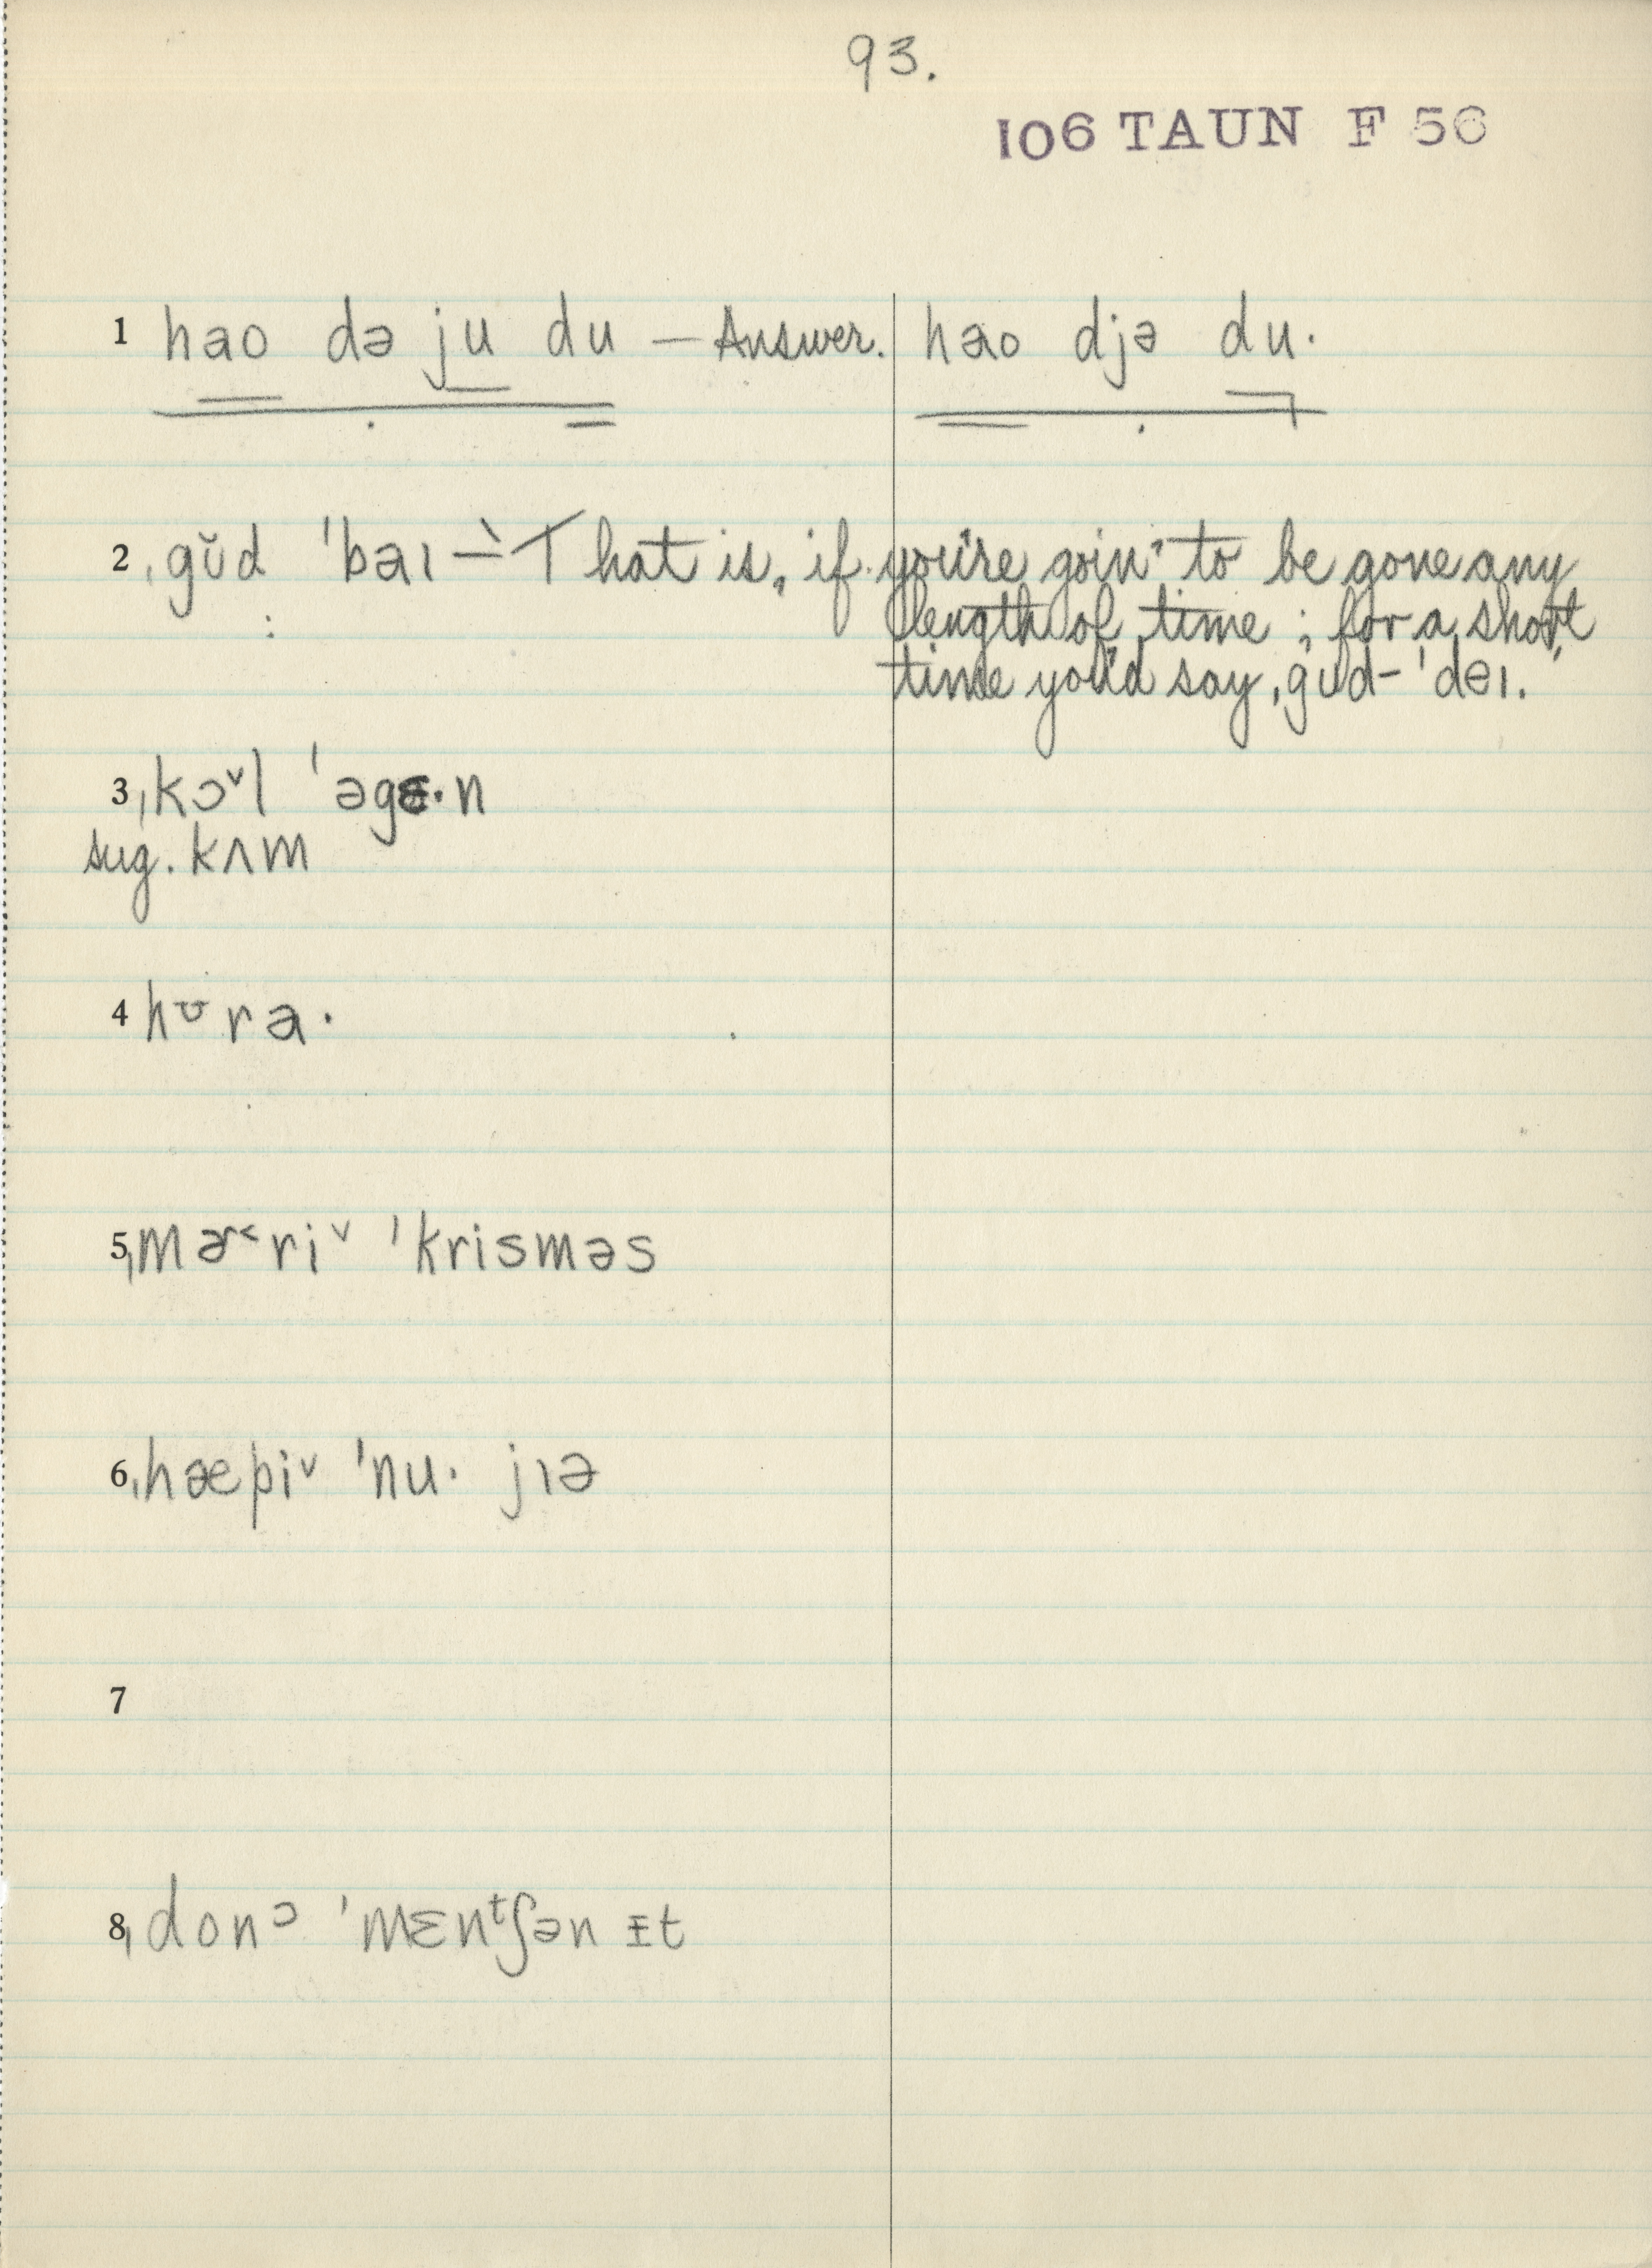 93.
106 TAUN F 56
1 hao də ju du — Answer. hao djə du.
2 ˌgŭd ˈbaɪ — "That is, if you're goin' to be gone any
length of time; for a short
time you'd say, ˌgud-ˈdeɪ."
3 ˌkɔˇl ˈəgɛ·n
sug. kʌm
4 hʊra·
5 ˌmɚ˂riˇ ˈkrisməs
6 ˌhæpiˇ ˈnu· jɪə
7
8 ˌdonᵓ ˈmɛnᵗʃən ɪt